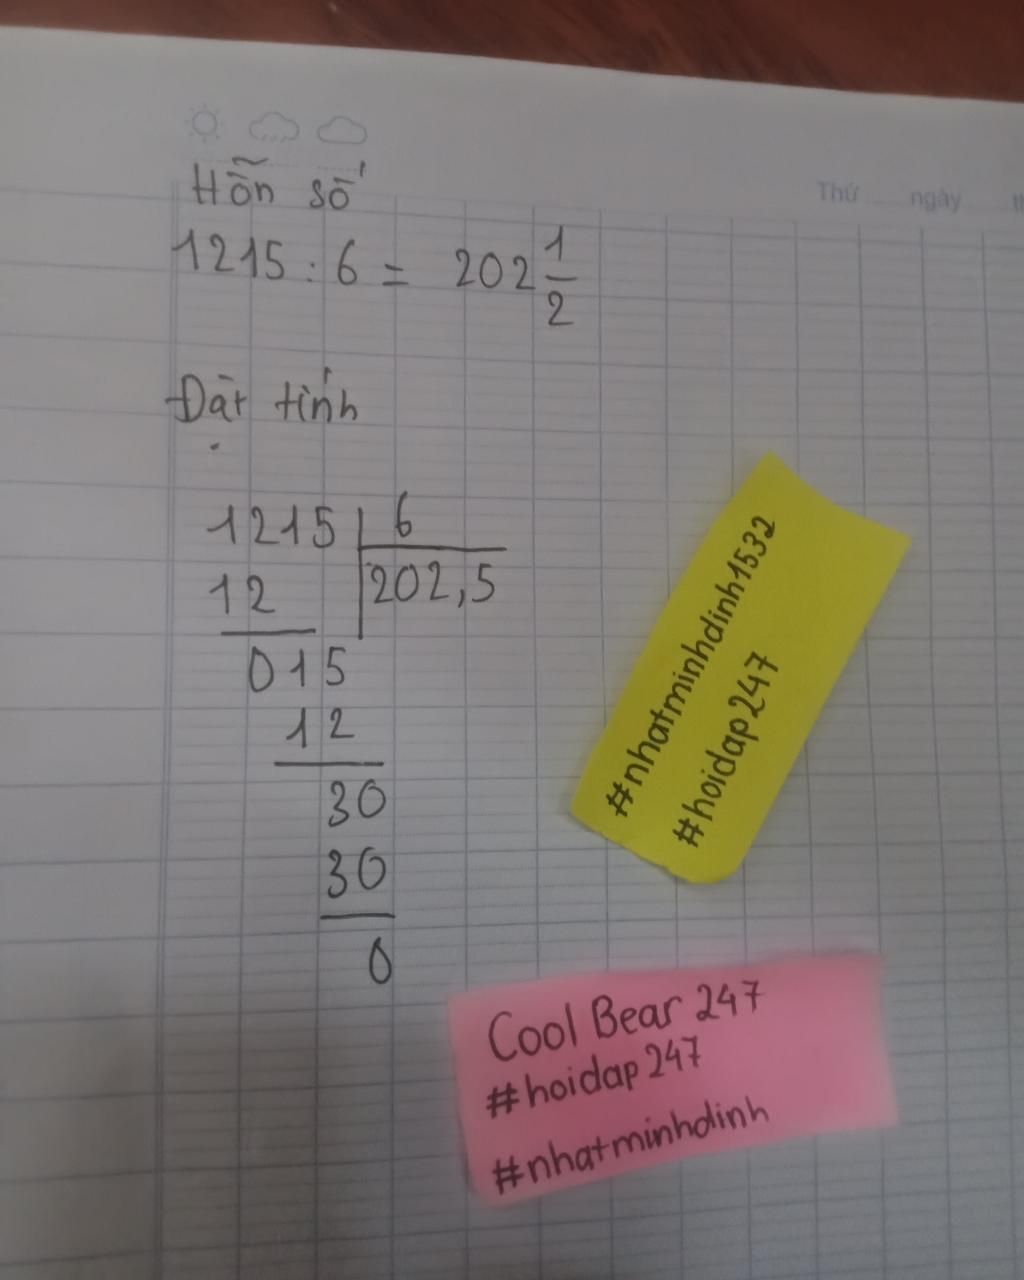 Thứ ngày
Hỗn số
1215 : 6 = 202 1/2
Đặt tính
1215 | 6
12 | 202,5
015
12
30
30
0
#nhatminhdinh1532
#hoidap247
Cool Bear 247
#hoidap247
#nhatminhdinh